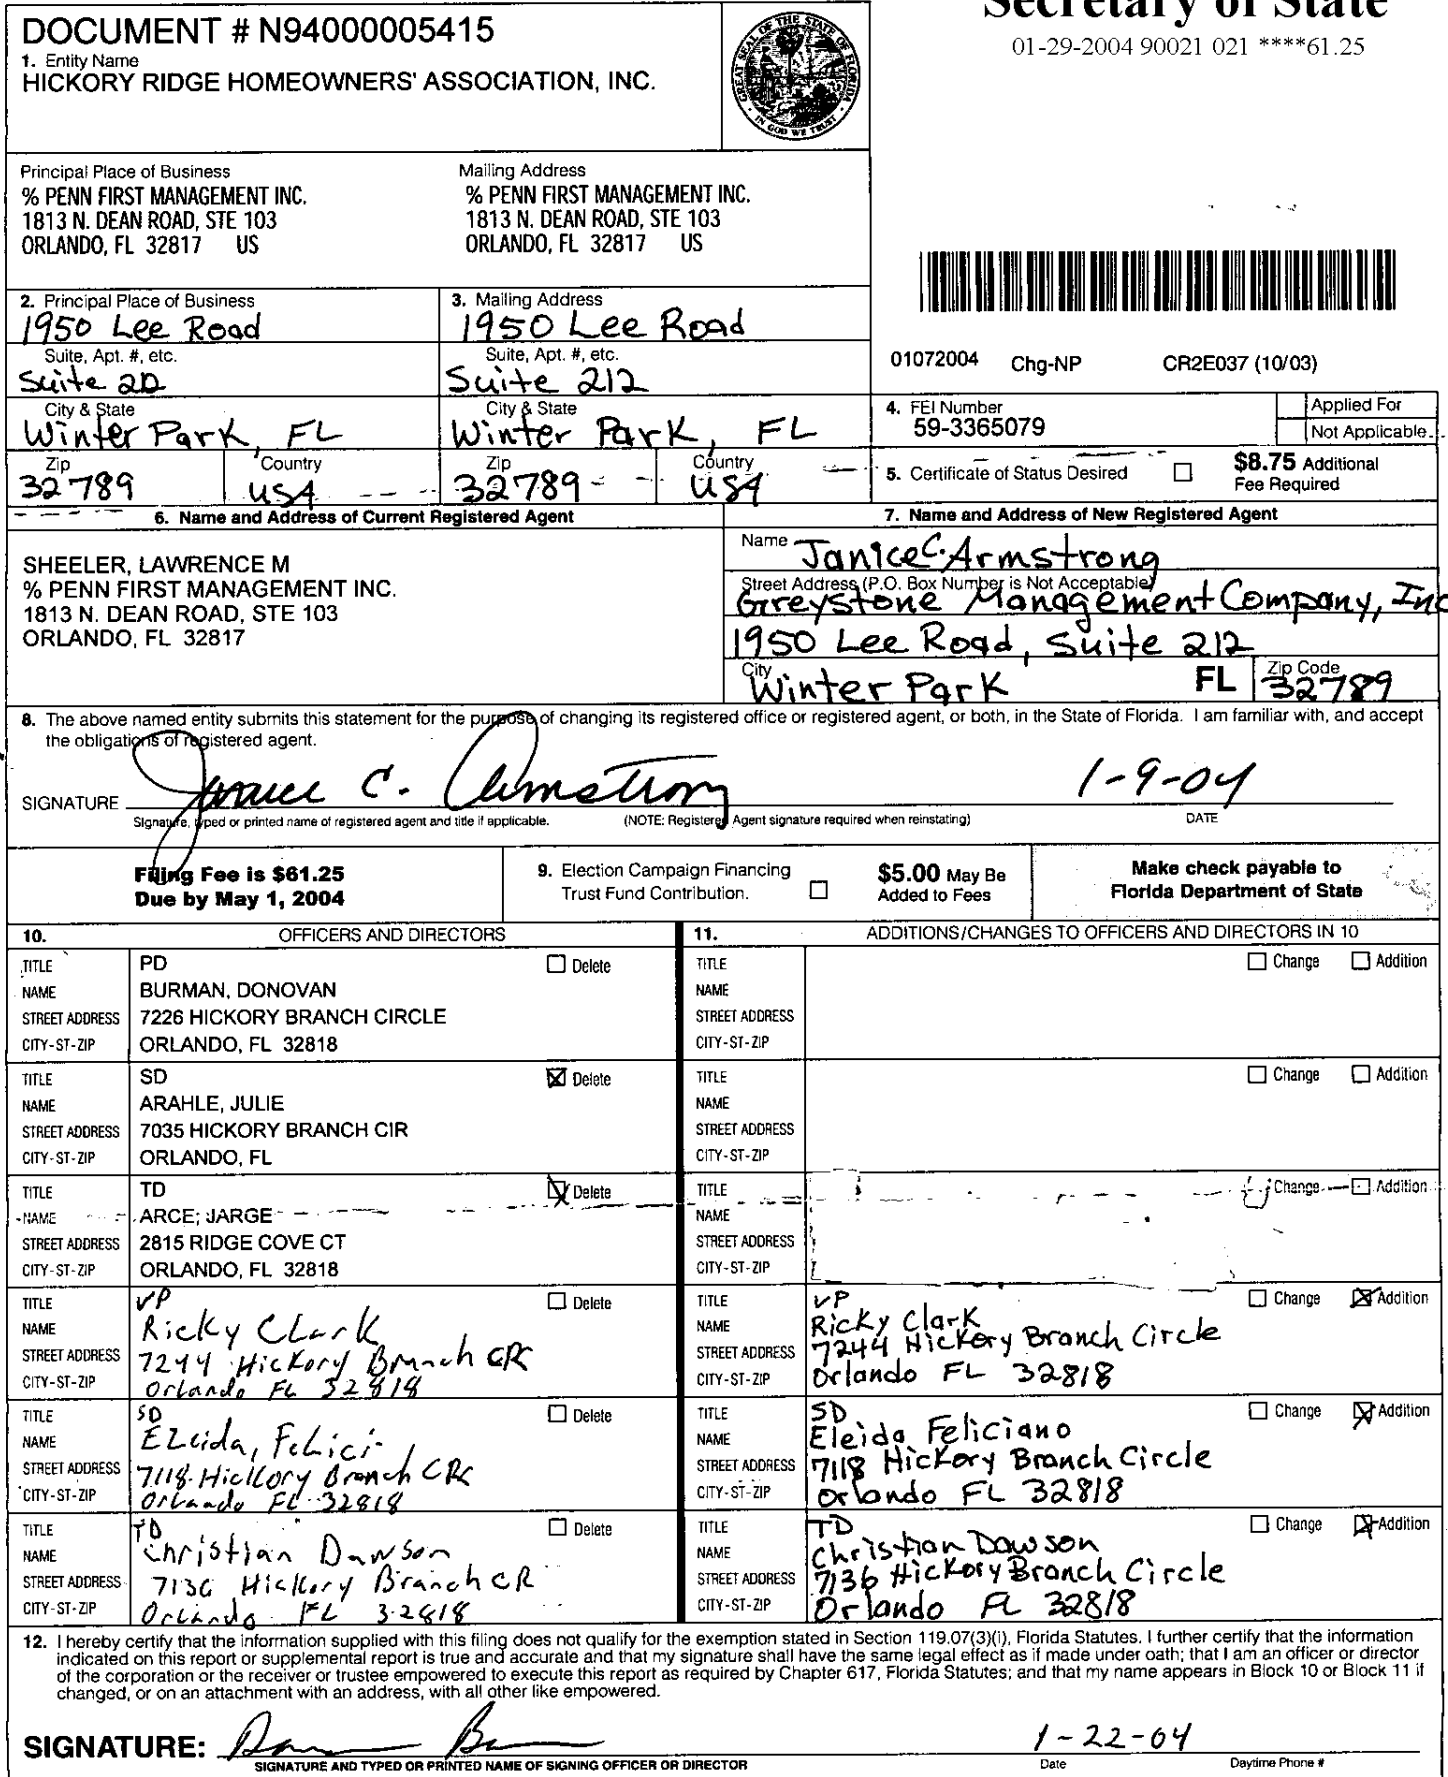 Secretary of State
01-29-2004 90021 021 ****61.25
DOCUMENT # N94000005415
1. Entity Name
HICKORY RIDGE HOMEOWNERS' ASSOCIATION, INC.
GREAT SEAL OF THE STATE OF FLORIDA
IN GOD WE TRUST
Principal Place of Business
% PENN FIRST MANAGEMENT INC.
1813 N. DEAN ROAD, STE 103
ORLANDO, FL 32817 US
Mailing Address
% PENN FIRST MANAGEMENT INC.
1813 N. DEAN ROAD, STE 103
ORLANDO, FL 32817 US
2. Principal Place of Business
1950 Lee Road
Suite, Apt. #, etc.
Suite 212
City & State
Winter Park, FL
Zip
32789
Country
USA
3. Mailing Address
1950 Lee Road
Suite, Apt. #, etc.
Suite 212
City & State
Winter Park, FL
Zip
32789
Country
USA
01072004 Chg-NP CR2E037 (10/03)
4. FEI Number
59-3365079
Applied For
Not Applicable
5. Certificate of Status Desired
$8.75 Additional
Fee Required
6. Name and Address of Current Registered Agent
SHEELER, LAWRENCE M
% PENN FIRST MANAGEMENT INC.
1813 N. DEAN ROAD, STE 103
ORLANDO, FL 32817
7. Name and Address of New Registered Agent
Name Janice C. Armstrong
Street Address (P.O. Box Number is Not Acceptable)
Greystone Management Company, Inc
1950 Lee Road, Suite 212
City
Winter Park FL
Zip Code
32789
8. The above named entity submits this statement for the purpose of changing its registered office or registered agent, or both, in the State of Florida. I am familiar with, and accept
the obligations of registered agent.
SIGNATURE Janice C. Armstrong 1-9-04
Signature, typed or printed name of registered agent and title if applicable. (NOTE: Registered Agent signature required when reinstating) DATE
Filing Fee is $61.25
Due by May 1, 2004
9. Election Campaign Financing
Trust Fund Contribution.
$5.00 May Be
Added to Fees
Make check payable to
Florida Department of State
10. OFFICERS AND DIRECTORS
11. ADDITIONS/CHANGES TO OFFICERS AND DIRECTORS IN 10
TITLE PD Delete
NAME BURMAN, DONOVAN
STREET ADDRESS 7226 HICKORY BRANCH CIRCLE
CITY-ST-ZIP ORLANDO, FL 32818
TITLE Change Addition
NAME
STREET ADDRESS
CITY-ST-ZIP
TITLE SD Delete
NAME ARAHLE, JULIE
STREET ADDRESS 7035 HICKORY BRANCH CIR
CITY-ST-ZIP ORLANDO, FL
TITLE Change Addition
NAME
STREET ADDRESS
CITY-ST-ZIP
TITLE TD Delete
NAME ARCE, JARGE
STREET ADDRESS 2815 RIDGE COVE CT
CITY-ST-ZIP ORLANDO, FL 32818
TITLE Change Addition
NAME
STREET ADDRESS
CITY-ST-ZIP
TITLE VP Delete
NAME Ricky Clark
STREET ADDRESS 7244 Hickory Branch CRC
CITY-ST-ZIP Orlando FL 32818
TITLE VP Change Addition
NAME Ricky Clark
STREET ADDRESS 7244 Hickory Branch Circle
CITY-ST-ZIP Orlando FL 32818
TITLE SD Delete
NAME Eleida, Felici
STREET ADDRESS 7118 Hickory Branch CRC
CITY-ST-ZIP Orlando FL 32818
TITLE SD Change Addition
NAME Eleida Feliciano
STREET ADDRESS 7118 Hickory Branch Circle
CITY-ST-ZIP Orlando FL 32818
TITLE TD Delete
NAME Christian Dawson
STREET ADDRESS 7136 Hickory Branch CR
CITY-ST-ZIP Orlando FL 32818
TITLE TD Change Addition
NAME Christian Dawson
STREET ADDRESS 7136 Hickory Branch Circle
CITY-ST-ZIP Orlando FL 32818
12. I hereby certify that the information supplied with this filing does not qualify for the exemption stated in Section 119.07(3)(i), Florida Statutes. I further certify that the information
indicated on this report or supplemental report is true and accurate and that my signature shall have the same legal effect as if made under oath; that I am an officer or director
of the corporation or the receiver or trustee empowered to execute this report as required by Chapter 617, Florida Statutes; and that my name appears in Block 10 or Block 11 if
changed, or on an attachment with an address, with all other like empowered.
SIGNATURE: 1-22-04
SIGNATURE AND TYPED OR PRINTED NAME OF SIGNING OFFICER OR DIRECTOR Date Daytime Phone #